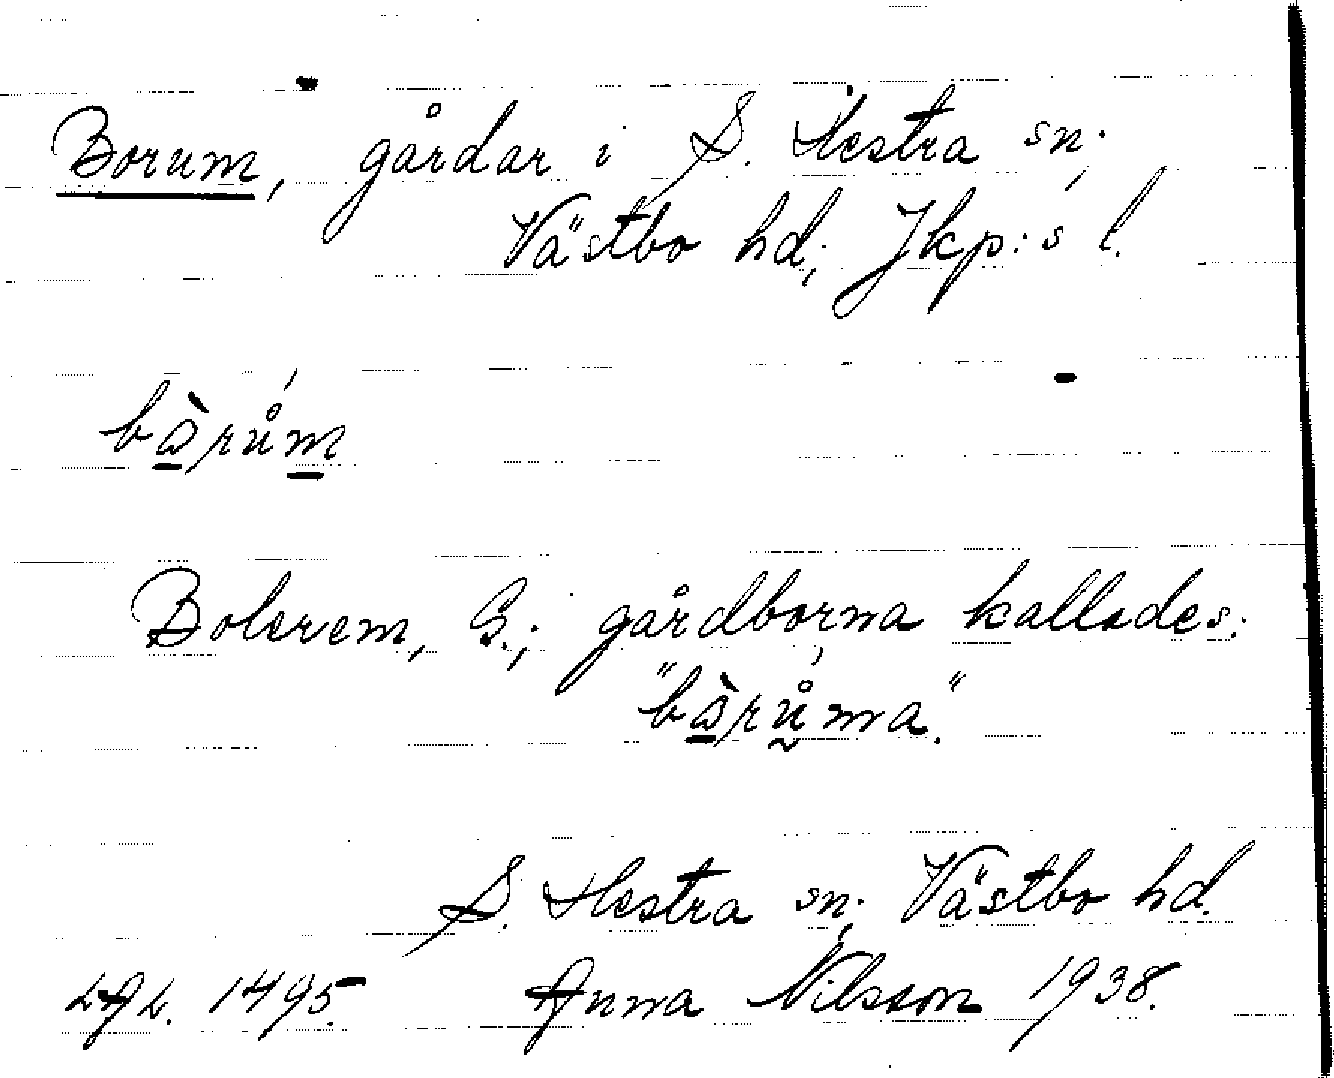 Borum, gårdar i S. Hestra sn;
Västbo hd; Jkp:s l.
bàrům
Bolerem, G.; gårdborna kallades:
"bàrůma".
S. Hestra sn; Västbo hd.
1495. Anna Nilsson 1938.